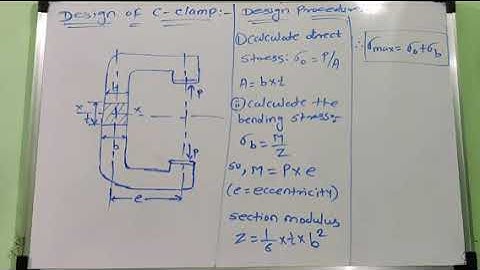 Design of C-clamp:-
b
x
x
t
b
P
P
e
Design Procedure
i) calculate direct
stress: σo = P/A
A = b×t
ii) calculate the
bending stress:
σb = M/Z
so, M = P×e
(e = eccentricity)
section modulus
Z = 1/6 × t × b²
∴ σmax = σo + σb